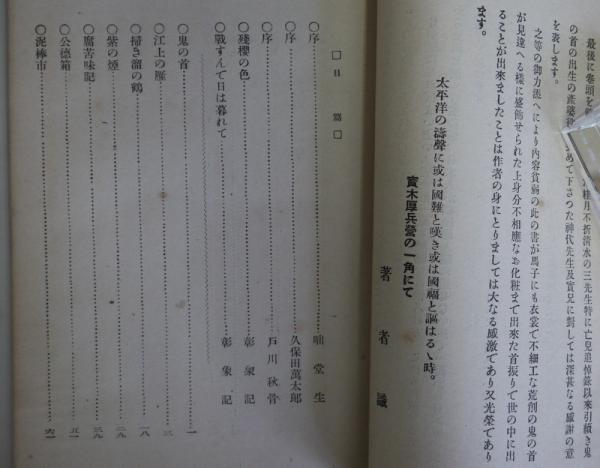 最後に卷頭を
桂月不折清水の三先生特に亡兒追悼錄以來引續き鬼
の首の出生の產婆役
めて下さつた神代先生及實兄に對しては深甚なる感謝の意
を表します。
之等の御力添へにより內容貧弱の此の書が馬子にも衣裳で不細工な荒削の鬼の首
が見違へる樣に盛飾せられた上身分不相應なお化粧まで出來た首振りで世の中に出
ることが出來ましたことは作者の身にとりましては大なる感激であり又光榮であり
ます。
太平洋の濤聲に或は國難と嘆き或は國福と謳はるゝ時。
實木厚兵營の一角にて
著者識
□目篇□
○序 咄堂生
○序 久保田萬太郎
○序 戶川秋骨
○殘櫻の色 彰象記
○戰すんで日は暮れて 彰象記
○鬼の首 一
○江上の雁 三
○掃き溜の鶴 一八
○紫の煙 二九
○腐苦味記 三九
○公德箱 五一
○泥棒市 六一